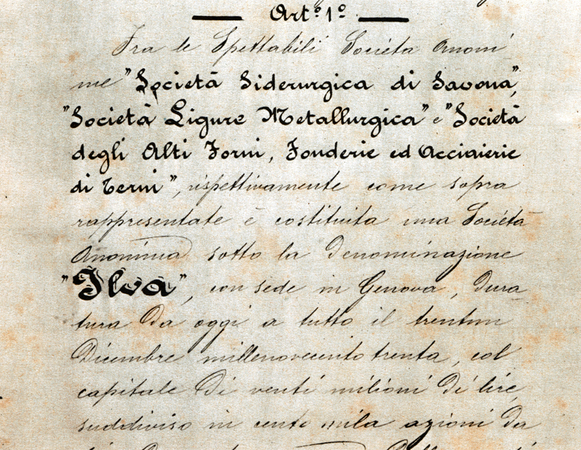 Art.º 1º
Fra le Spettabili Società Anoni
me "Società Siderurgica di Savona",
"Società Ligure Metallurgica" e "Società
degli Alti Forni, Fonderie ed Acciaierie
di Terni", rispettivamente come sopra
rappresentate è costituita una Società
Anonima sotto la denominazione
"Ilva", con sede in Genova, dura
tura da oggi a tutto il trentun
Dicembre millenovecentotrenta, col
capitale di venti milioni di lire,
suddiviso in cento mila azioni da